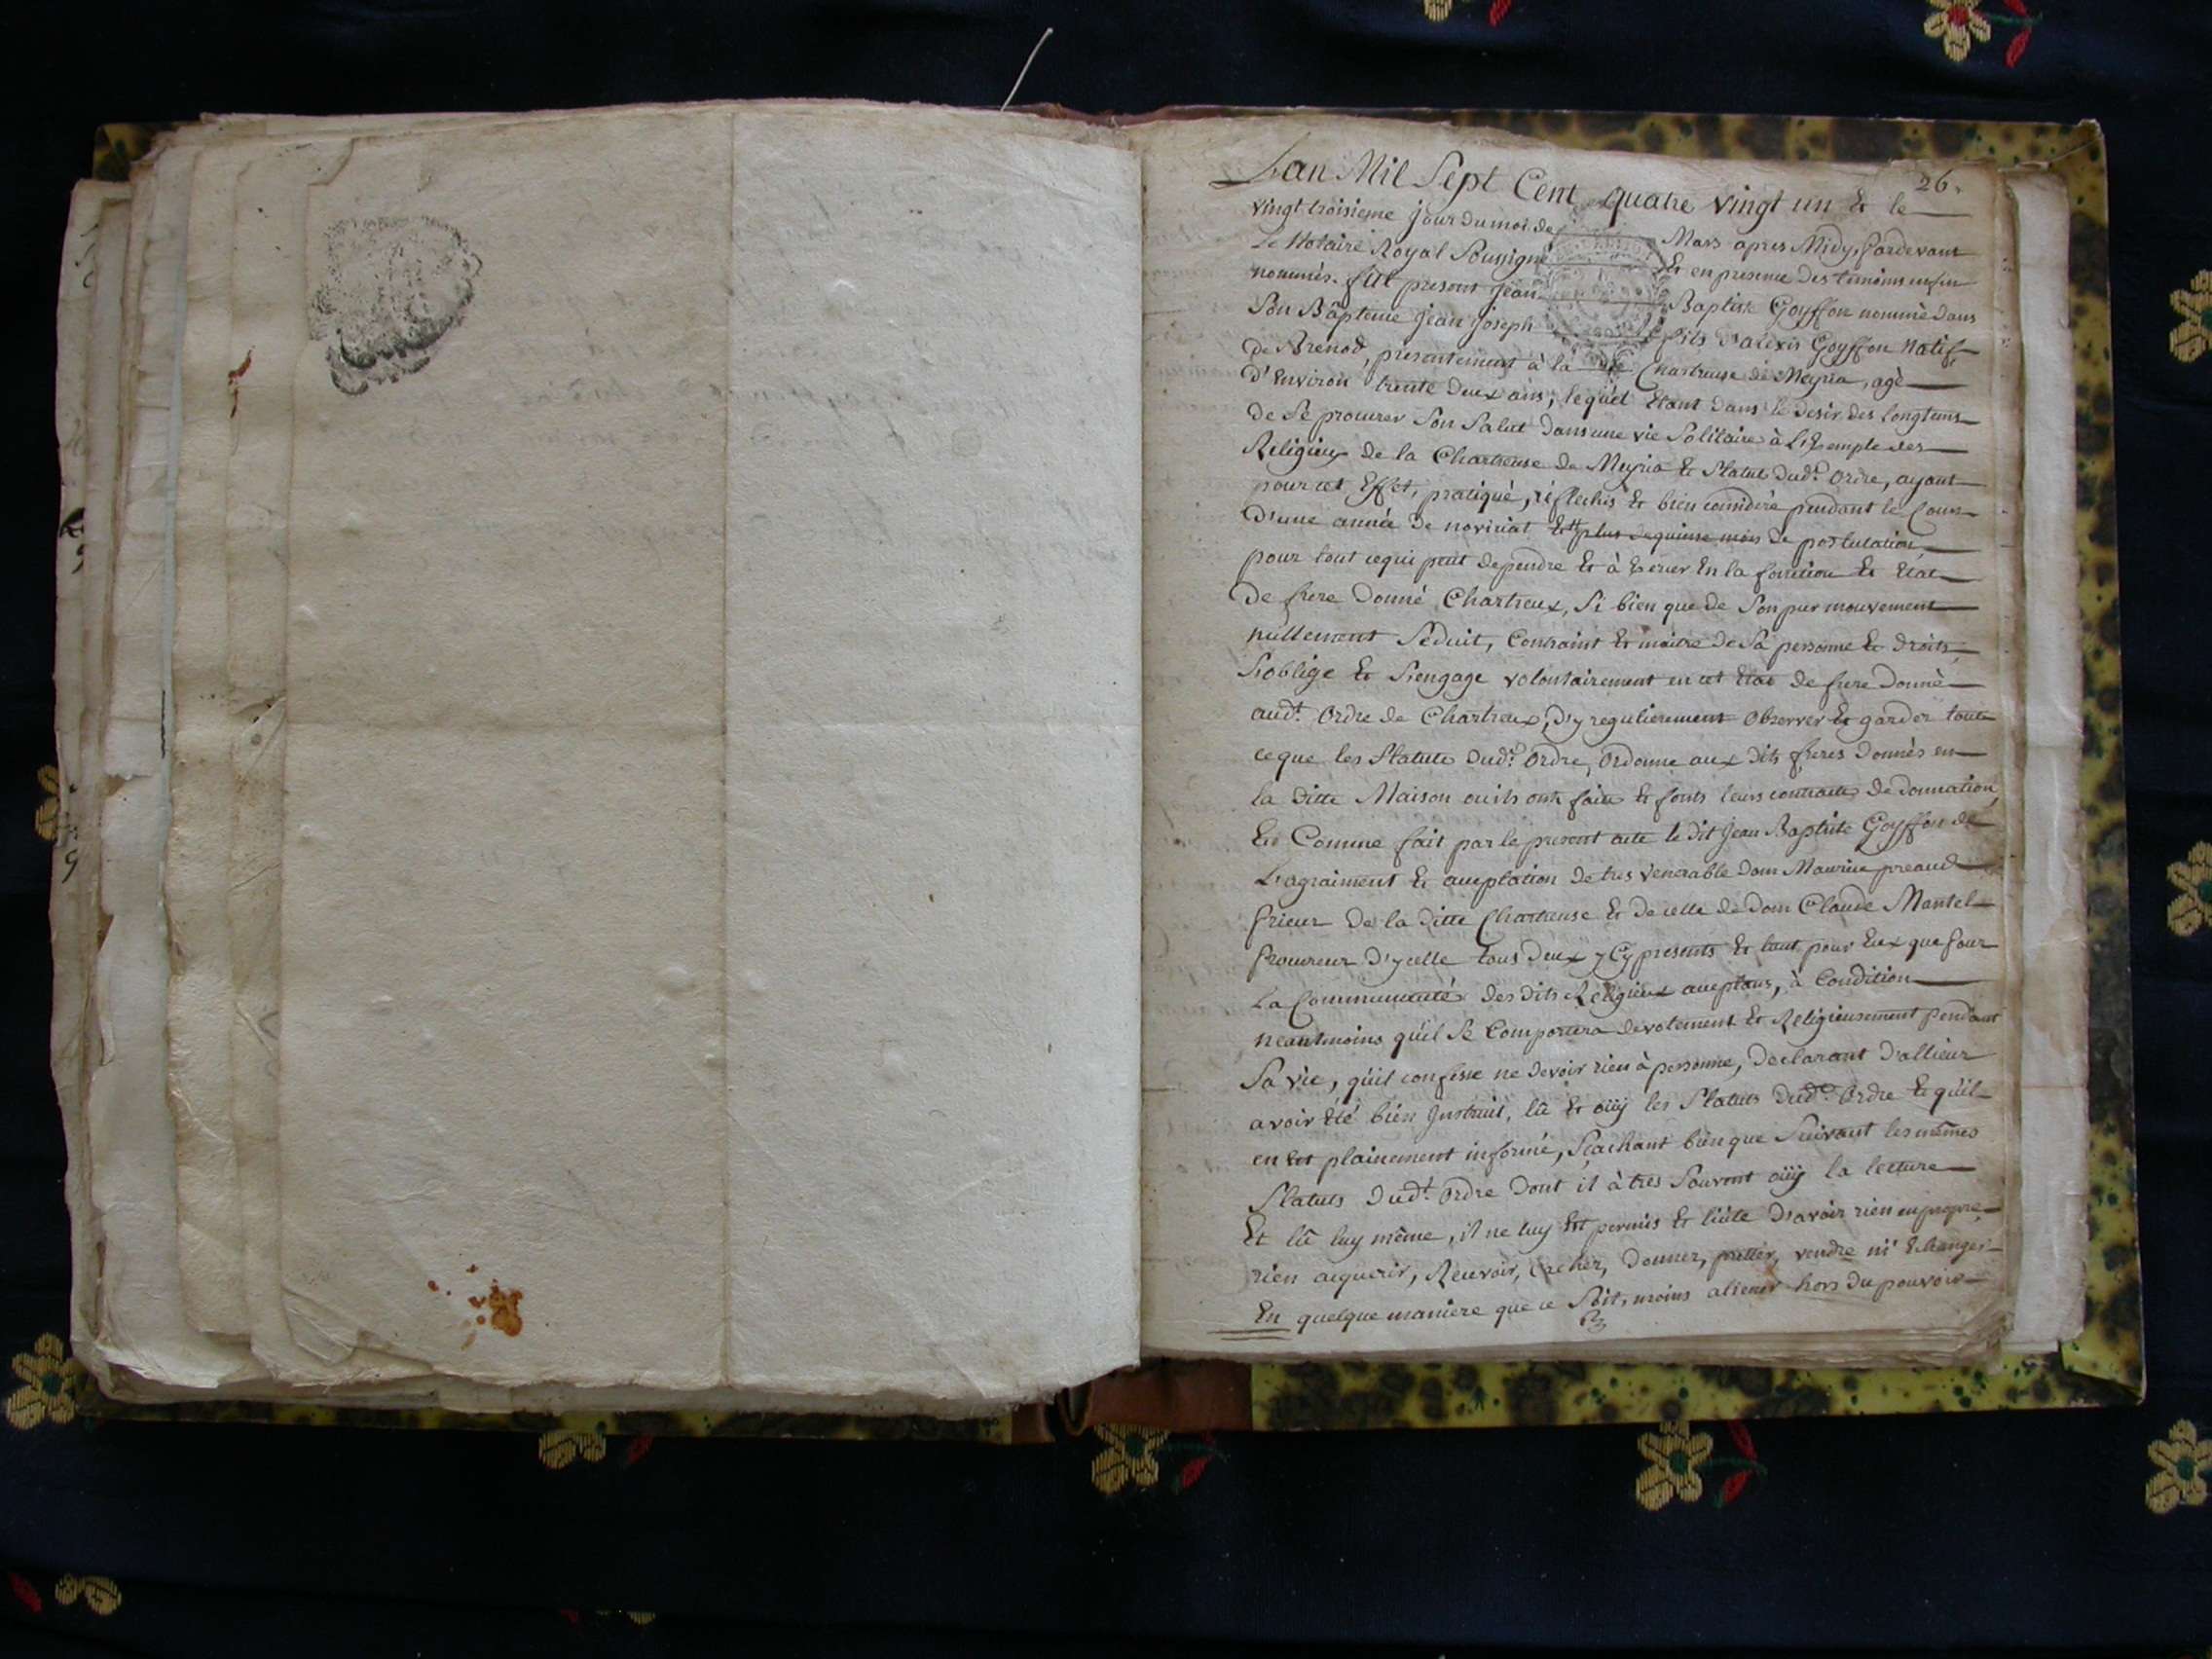 26.
L'an Mil Sept Cent quatre vingt un & le
vingt troisieme jour du moi de Mars apres Midy, pardevant
Le Notaire Royal Soussigné & en presence des temoins enfin
nommés. fut present Jean Baptiste Goyffon nommé dans
Son Bâpteme Jean Joseph fils d'alexis Goyffon Natif
de Brenod, presentement à la Chartreuse de Meyria, agé
d'Environ trente deux ans, lequel Etant dans le desir des longtems
de Se procurer Son Salut dans une vie Solitaire à L'Exemple des
Religieux de la Chartreuse de Meyria & Statuts dud.t Ordre, ayant
pour cet Effet, pratiqué, réflechis & bien consideré pendant le Cour
d'une année de noviciat & plus de quinse mois de postulation,
pour tout ce qui peut dependre & à Exercer En la fonction & Etat
de frere Donné Chartreux, Si bien que de Son pur mouvement
nullement Séduit, Contraint & maitre de Sa personne & droits
S'oblige & S'engage volontairement en cet Etat de frere donné
aud.t Ordre de Chartreux, d'y regulierement Observer & garder toute
ce que les Statuts dud.t Ordre, Ordonne aux dits freres donnés en
la ditte Maison ou ils onts faits & fonts leurs contracts de donnation,
En Comme fait par le present acte le dit Jean Baptiste Goyffon de
L'agraiment & aceptation de tres venerable dom Maurice preaud
Prieur de la ditte Chartreuse & de celle de dom Claude Mantel
Procureur d'ycelle tous deux y Cy presents & tant pour Eux que pour
La Communauté des dits Religieux aceptans, à Condition
neantmoins qu'il Se Comportera devotement & Religieusement pendant
Sa vie, qu'il confesse ne devoir rien à personne, declarant d'allieur
avoir été bien Instruit, lû & oüy les Statuts dud.t Ordre & qu'il
en Est plainement informé, Sçachant bien que Suivant les mêmes
Statuts dud.t Ordre dont il à tres Souvent oüy la lecture
Et lû luy même, il ne luy Est permis & licite d'avoir rien en propre,
rien acquerir, Recevoir, cacher, donner, pretter, vendre ni Echanger
En quelque maniere que ce Soit, moins aliener hors du pouvoir